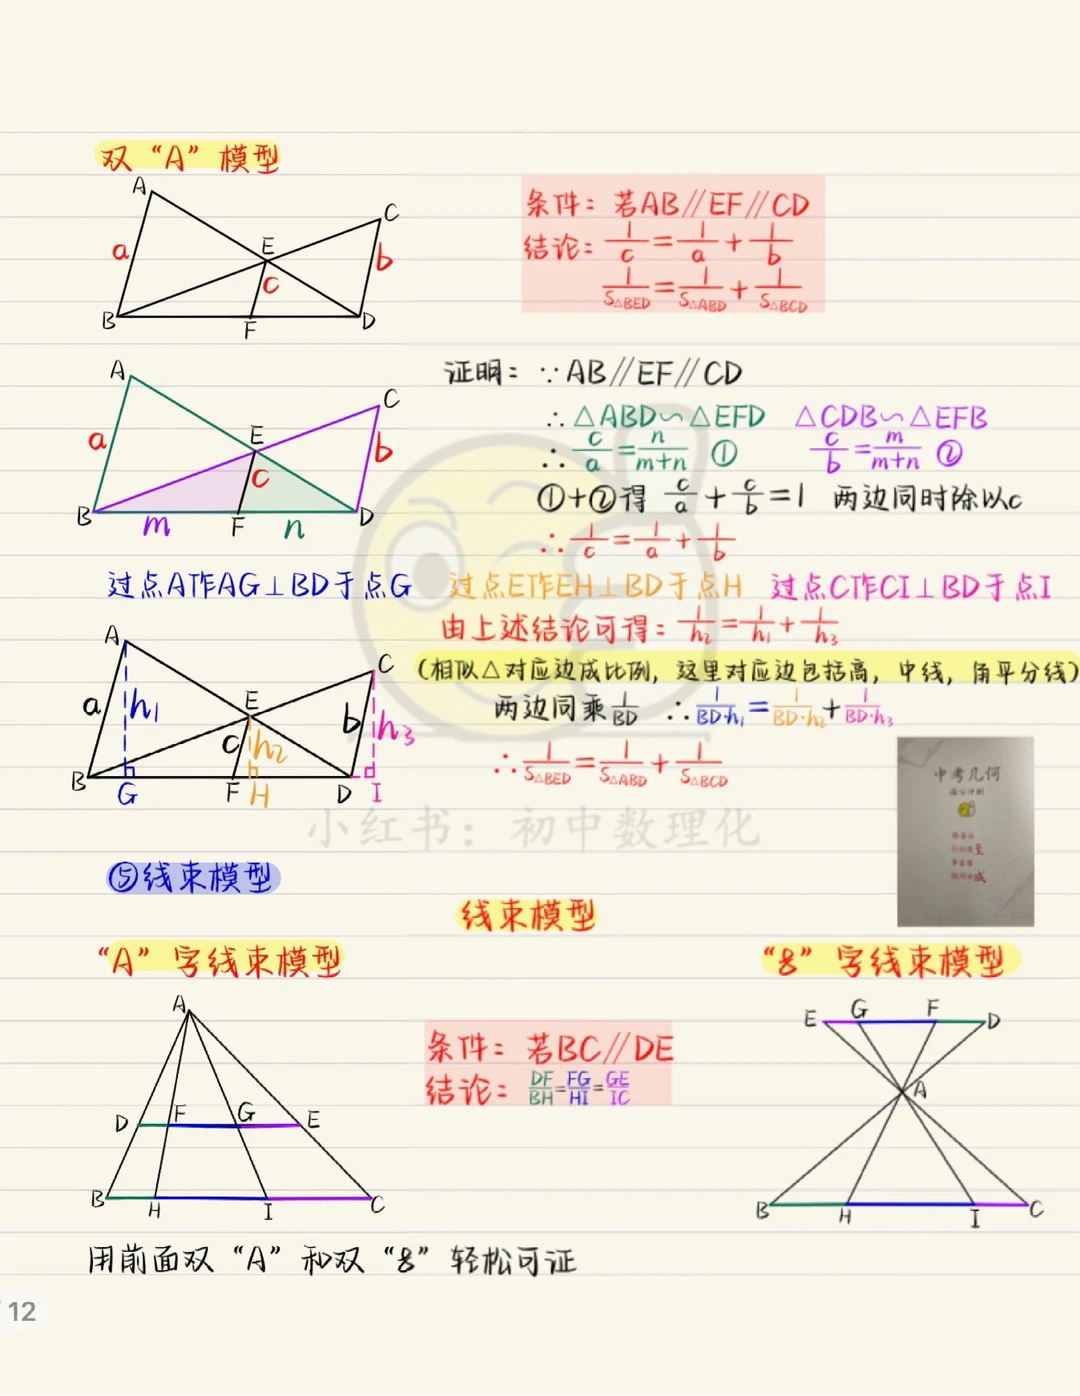 双“A”模型
A
C
E
a
b
c
B
F
D
条件：若AB∥EF∥CD
结论：1/c=1/a+1/b
1/S△BED=1/S△ABD+1/S△BCD
证明：∵AB∥EF∥CD
∴△ABD∽△EFD △CDB∽△EFB
∴c/a=n/m+n ① c/b=m/m+n ②
①+②得 c/a+c/b=1 两边同时除以c
∴1/c=1/a+1/b
A
C
E
a
b
c
B
m
F
n
D
过点A作AG⊥BD于点G 过点E作EH⊥BD于点H 过点C作CI⊥BD于点I
由上述结论可得：1/h2=1/h1+1/h3
(相似△对应边成比例，这里对应边包括高，中线，角平分线)
两边同乘1/BD ∴1/BD·h1=1/BD·h2+1/BD·h3
∴1/S△BED=1/S△ABD+1/S△BCD
A
C
E
a
h1
b
h3
c
h2
B
G
F
H
D
I
中考几何
小红书：初中数理化
⑤线束模型
线束模型
“A”字线束模型
“8”字线束模型
条件：若BC∥DE
结论：DF/BH=FG/HI=GE/IC
A
D
F
G
E
B
H
I
C
E
G
F
D
A
B
H
I
C
用前面双“A”和双“8”轻松可证
12